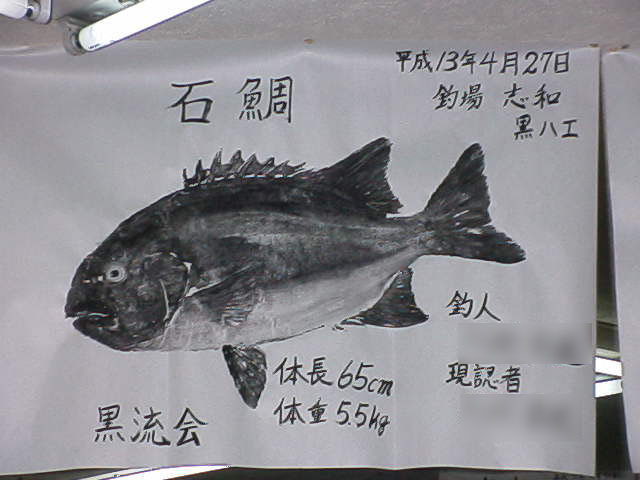 石鯛
平成13年4月27日
釣場 志和
黒ハエ
釣人
現認者
体長 65cm
体重 5.5kg
黒流会